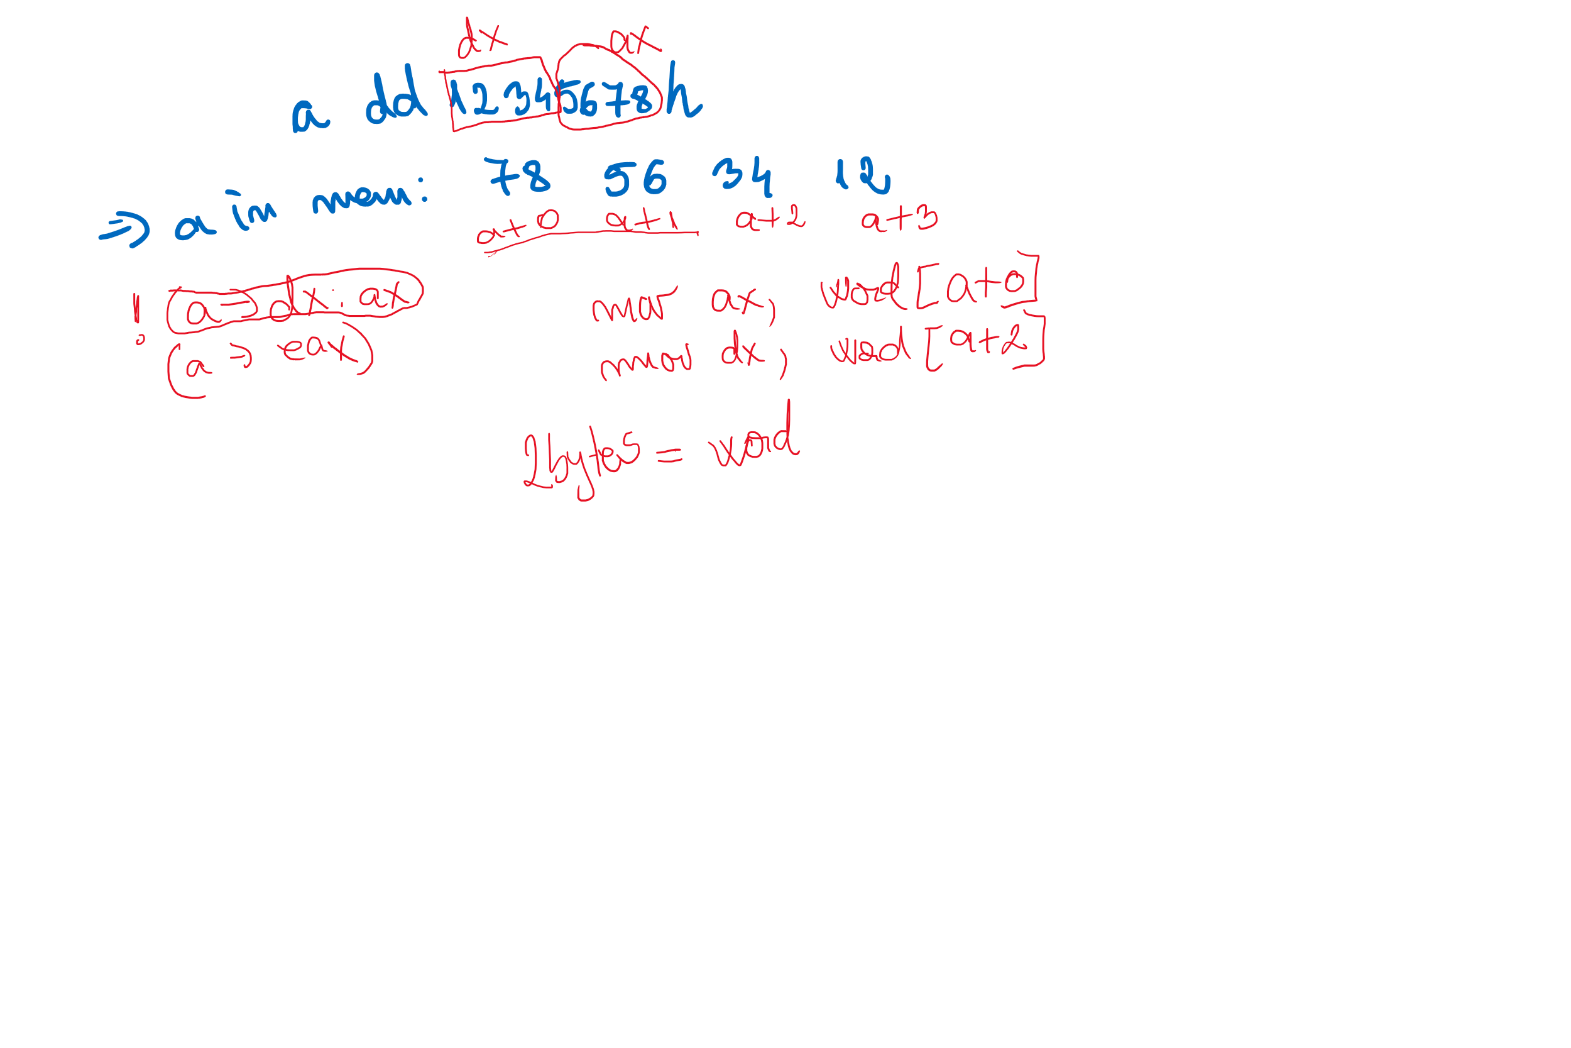 dx ax
a dd 12345678h
=> a in mem: 78 56 34 12
a+0 a+1 a+2 a+3
! (a => dx:ax)
(a => eax)
mov ax, word [a+0]
mov dx, word [a+2]
2bytes = word